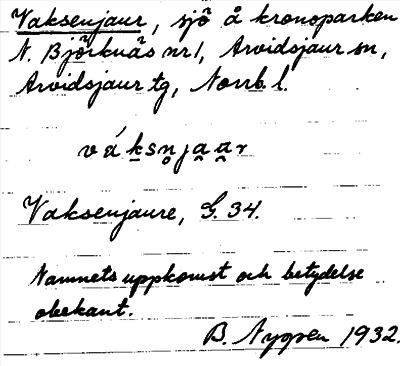 Vaksenjaur, sjö å kronoparken
N. Björknäs nr 1, Arvidsjaur sn,
Arvidsjaur tg, Norrb. l.
váksn̥jaar
Vaksenjaure, G. 34.
Namnets uppkomst och betydelse
obekant.
B. Nygren 1932.